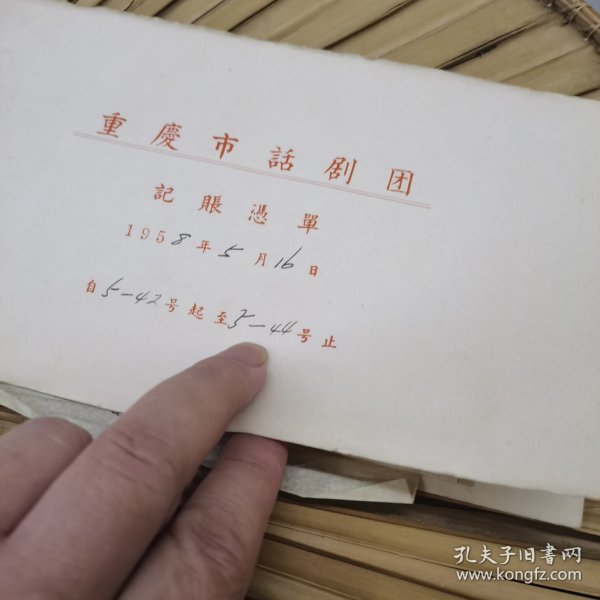 重慶市話剧团
記賬憑單
1958年5月16日
自5-42号起至5-44号止
孔夫子旧書网
www.kongfz.com